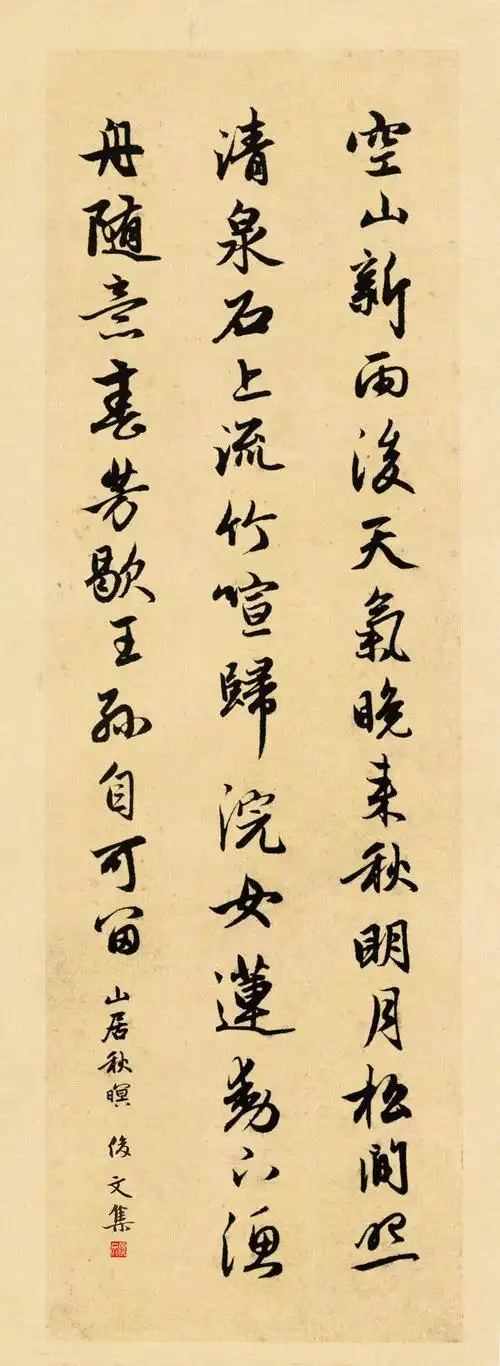 空山新雨後天氣晚来秋明月松間照
清泉石上流竹喧歸浣女蓮動下漁
舟随意春芳歇王孫自可留
山居秋暝 俊文集